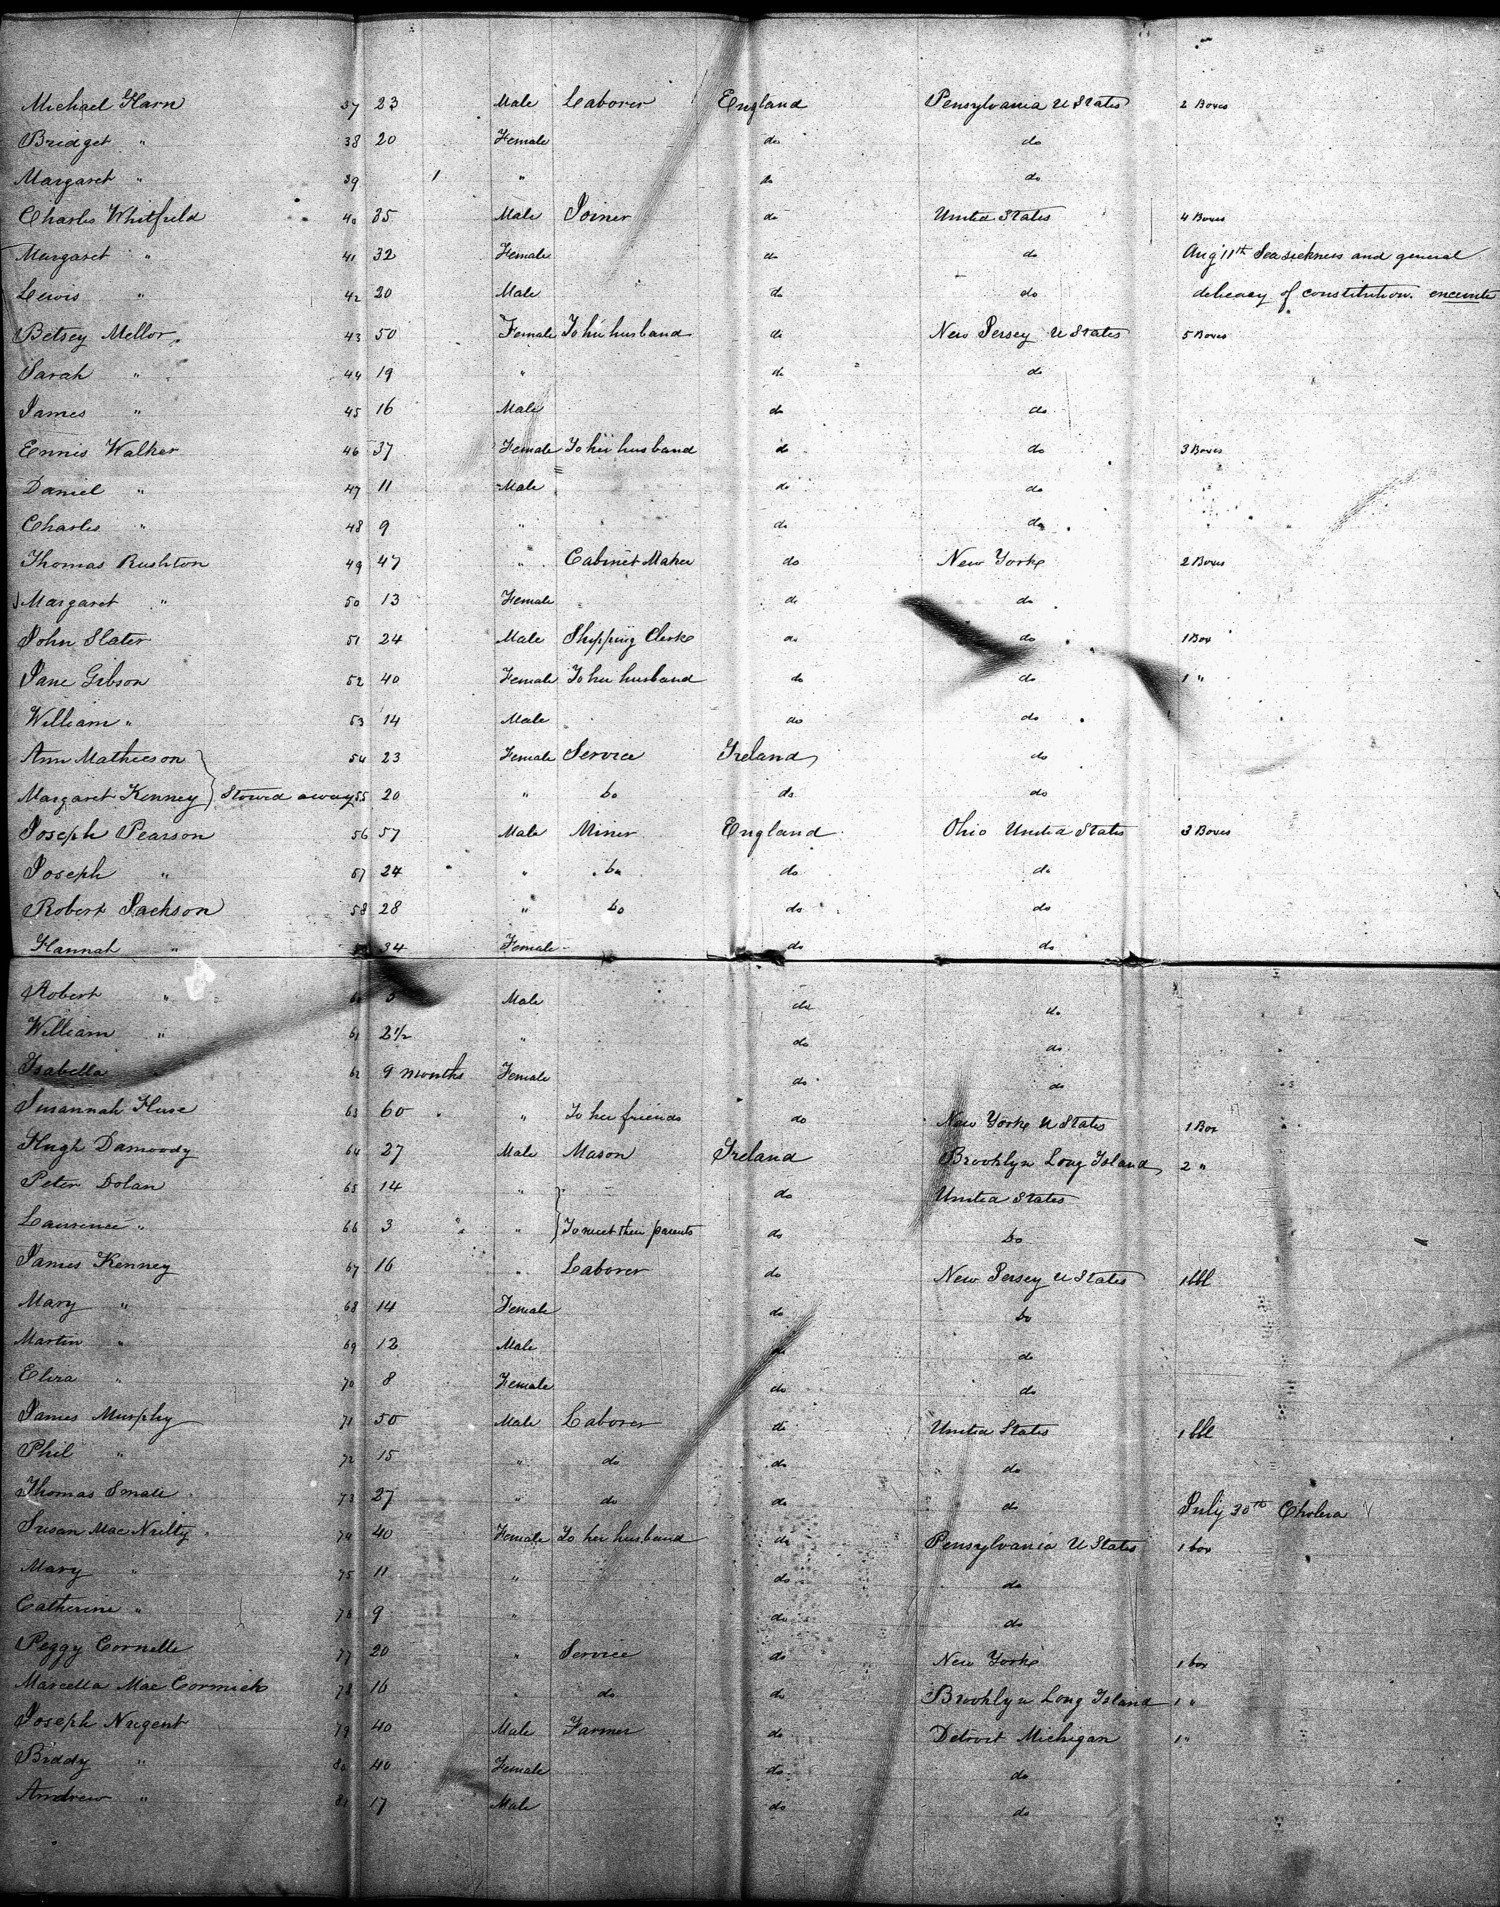 Michael Harn 37 23 Male Laborer England Pensylvania U States 2 Boxes
Bridget " 38 20 Female do do
Margaret " 39 1 " do do
Charles Whitfield 40 35 Male Joiner do United States 4 Boxes
Margaret " 41 32 Female do do Aug 11th Seasickness and general
Lewis " 42 20 Male do do delicacy of constitution. enceinte
Betsey Mellor 43 50 Female To her husband do New Jersey U States 5 Boxes
Sarah " 44 19 " do do
James " 45 16 Male do do
Ennis Walker 46 37 Female To her husband do do 3 Boxes
Daniel " 47 11 Male do do
Charles " 48 9 " do do
Thomas Rushton 49 47 " Cabinet Maker do New York 2 Boxes
Margaret " 50 13 Female do do
John Slater 51 24 Male Shipping Clerk do do 1 Box
Jane Gibson 52 40 Female To her husband do do 1 "
William " 53 14 Male do do
Ann Mathieson 54 23 Female Service Ireland do
Margaret Kenney } Stowed away 55 20 " Do do do
Joseph Pearson 56 57 Male Miner England Ohio United States 3 Boxes
Joseph " 57 24 " Do do do
Robert Jackson 58 28 " Do do do
Hannah " 34 Female do do
Robert " 60 Male do do
William " 61 2½ " do do
Isabella 62 9 months Female do do
Susannah Huse 63 60 " To her friends do New York U States 1 Box
Hugh Damoody 64 27 Male Mason Ireland Brooklyn Long Island 2 "
Peter Dolan 65 14 " do United States
Laurence " 66 3 " } To meet their parents do Do
James Kenney 67 16 " Laborer do New Jersey U States 1 bbl
Mary " 68 14 Female do Do
Martin " 69 12 Male do do
Eliza " 70 8 Female do do
James Murphy 71 50 Male Laborer do United States 1 bbl
Phil " 72 15 " do do do
Thomas Smale 73 27 " do do do July 30th Cholera
Susan Mac Nulty 74 40 Female To her husband do Pensylvania U States 1 box
Mary " 75 11 " do do
Catherine " 76 9 " do do
Peggy Cornelle 77 20 " Service do New York 1 box
Marcella Mac Cormick 78 16 " do do Brooklyn Long Island 1 "
Joseph Nugent 79 40 Male Farmer do Detroit Michigan 1 "
Biddy " 80 40 Female do do
Andrew " 81 17 Male do do